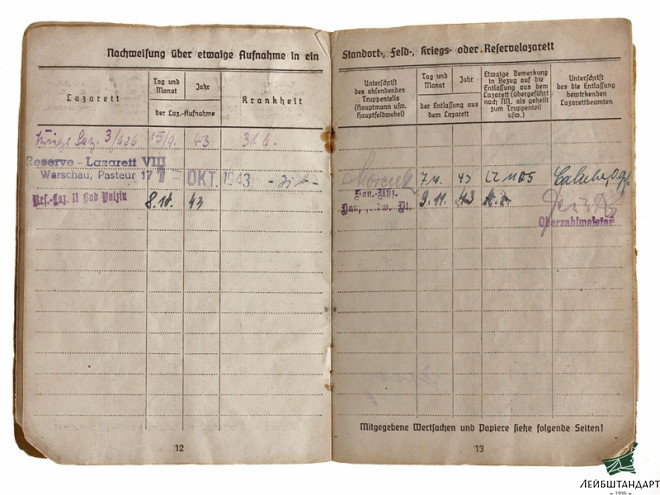 Nachweisung über etwaige Aufnahme in ein
Lazarett
Tag und
Monat
Jahr
der Laz.-Aufnahme
Krankheit
3/626 15/9. 43 31 b.
Reserve-Lazarett VIII
Warschau, Pasteur 17 7 - OKT. 1943
Res.-Laz. II Bad Polzin 8.11. 43
12
Standort-, Feld-, Kriegs- oder Reservelazarett
Unterschrift
des absendenden
Truppenteils
(Hauptmann usw.
Hauptfeldwebel)
Tag und
Monat
Jahr
der Entlassung aus
dem Lazarett
Etwaige Bemerkung
in Bezug auf die
Entlassung aus dem
Lazarett (übergeführt
nach NN, als geheilt
zum Truppenteil
usw.)
Unterschrift
des die Entlassung
bewirkenden
Lazarettbeamten
7.11. 43
9.11. 43
Oberzahlmeister
Mitgegebene Wertsachen und Papiere siehe folgende Seiten!
13
ЛЕЙБШТАНДАРТ